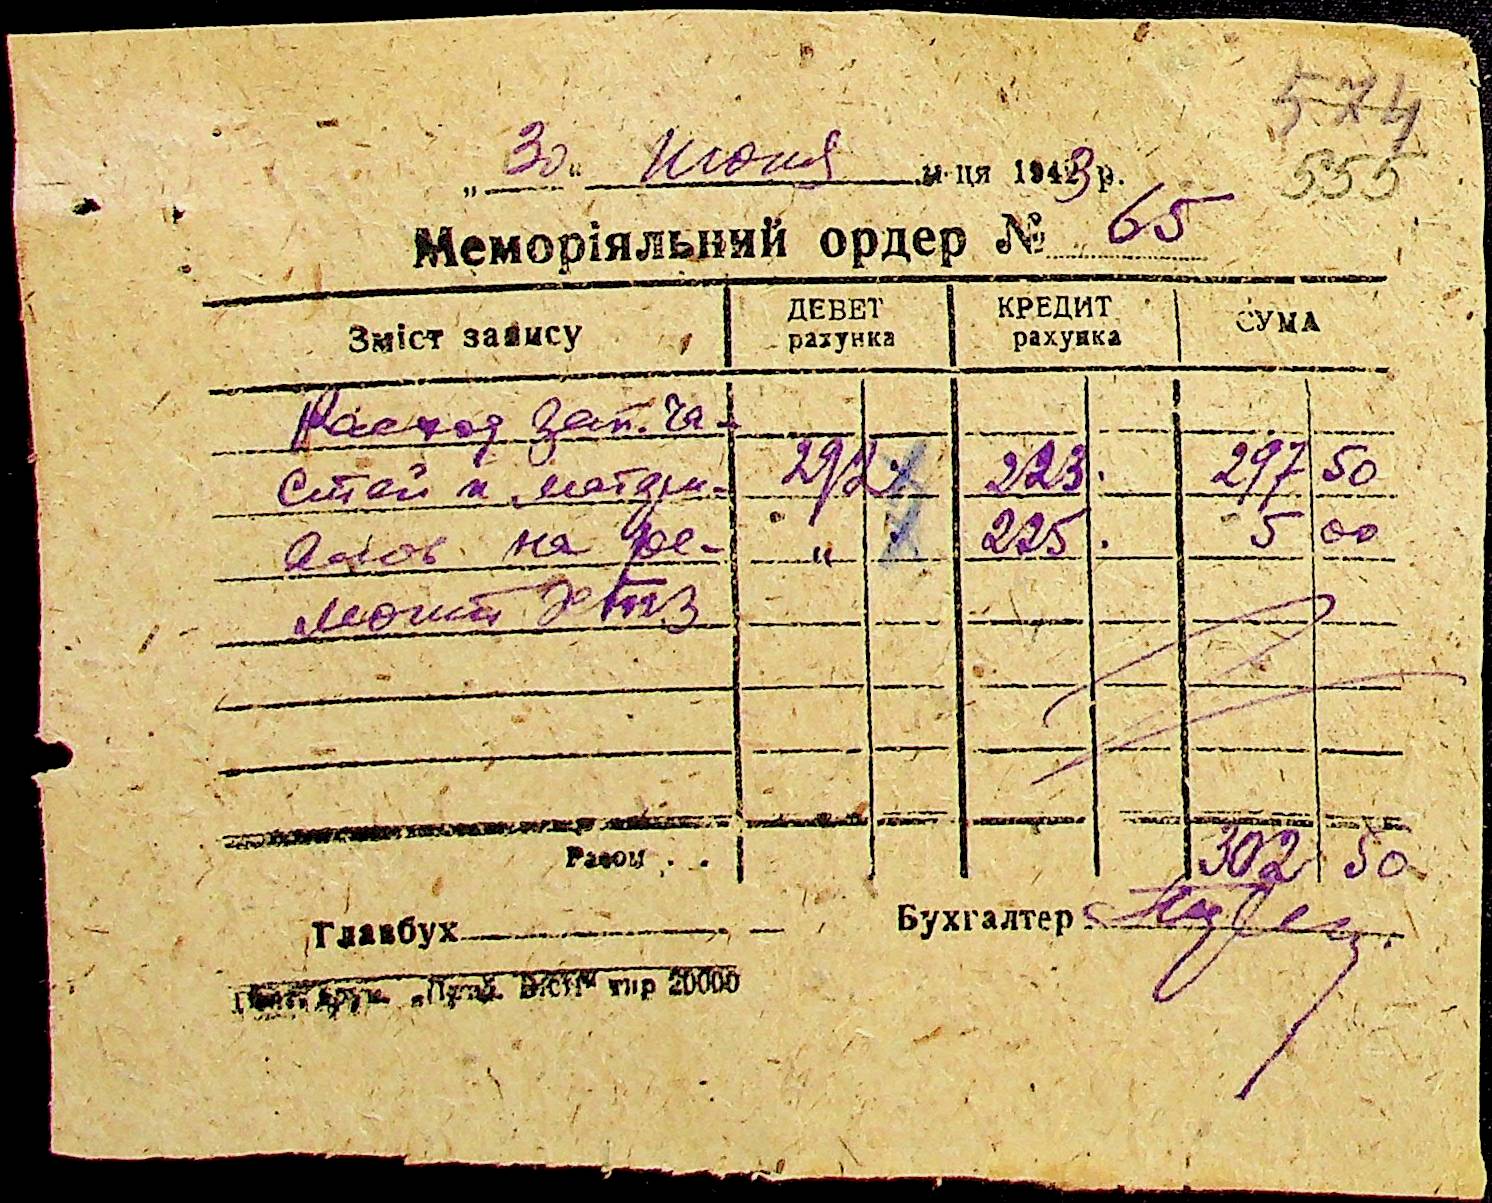 574
555
„30“ Июня м-ця 1943 р.
Меморіяльний ордер № 65
Зміст запису ДЕБЕТ рахунка КРЕДИТ рахунка СУМА
Расход зап. ча-
стей и матери- 292 223. 297 50
алов на ре- „ 225. 5 00
монт ХТЗ
Разом . . 302 50
Главбух
Бухгалтер
друк. тир 20000